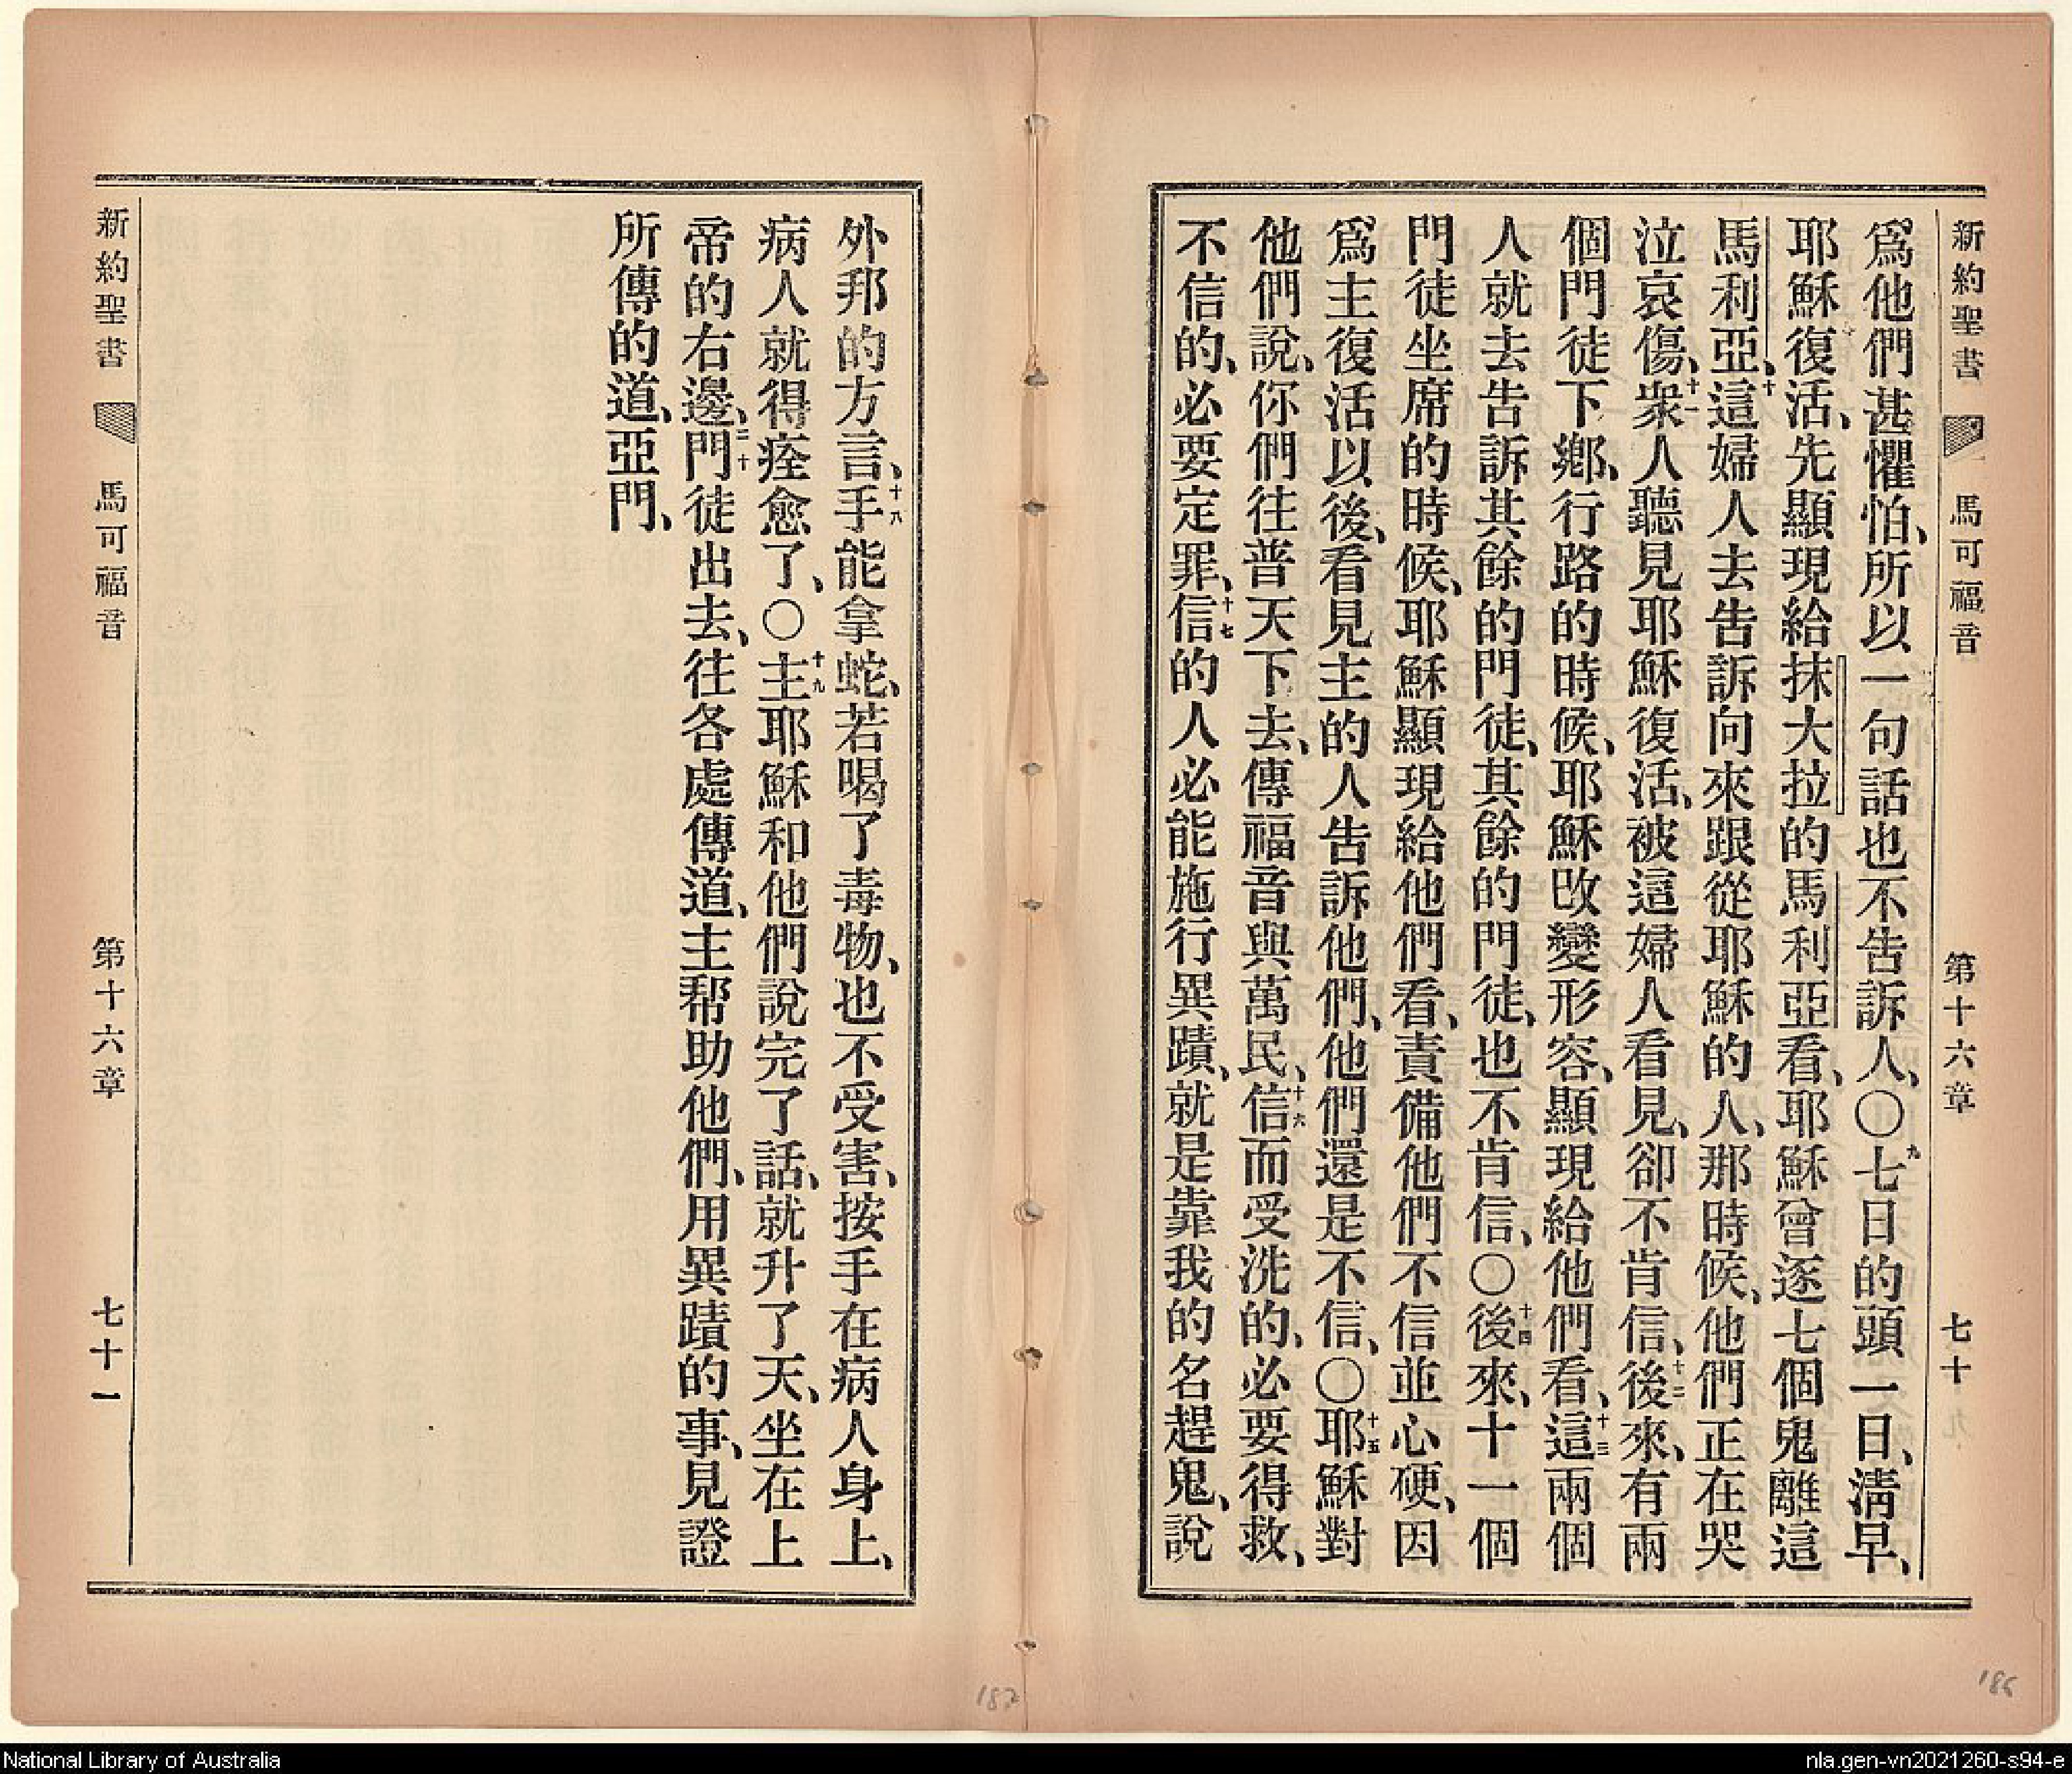 新約聖書 馬可福音 第十六章 七十
爲他們甚懼怕、所以一句話也不告訴人、〇九七日的頭一日、淸早、
耶穌復活、先顯現給抹大拉的馬利亞看、耶穌曾逐七個鬼離這
馬利亞、十這婦人去吿訴向來跟從耶穌的人、那時候、他們正在哭
泣哀傷、十一衆人聽見耶穌復活、被這婦人看見、卻不肯信、十二後來、有兩
個門徒下鄉、行路的時候、耶穌改變形容、顯現給他們看、十三這兩個
人就去告訴其餘的門徒、其餘的門徒、也不肯信、〇十四後來、十一個
門徒坐席的時候、耶穌顯現給他們看、責備他們不信並心硬、因
爲主復活以後、看見主的人告訴他們、他們還是不信、〇十五耶穌對
他們說、你們往普天下去、傳福音與萬民、十六信而受洗的、必要得救、
不信的、必要定罪、十七信的人必能施行異蹟、就是靠我的名趕鬼、說
外邦的方言、十八手能拿蛇、若喝了毒物、也不受害、按手在病人身上、
病人就得痊愈了、〇十九主耶穌和他們說完了話、就升了天、坐在上
帝的右邊、二十門徒出去、往各處傳道、主幇助他們、用異蹟的事、見證
所傳的道、亞門、
新約聖書 馬可福音 第十六章 七十一
187
186
National Library of Australia
nla.gen-vn2021260-s94-e